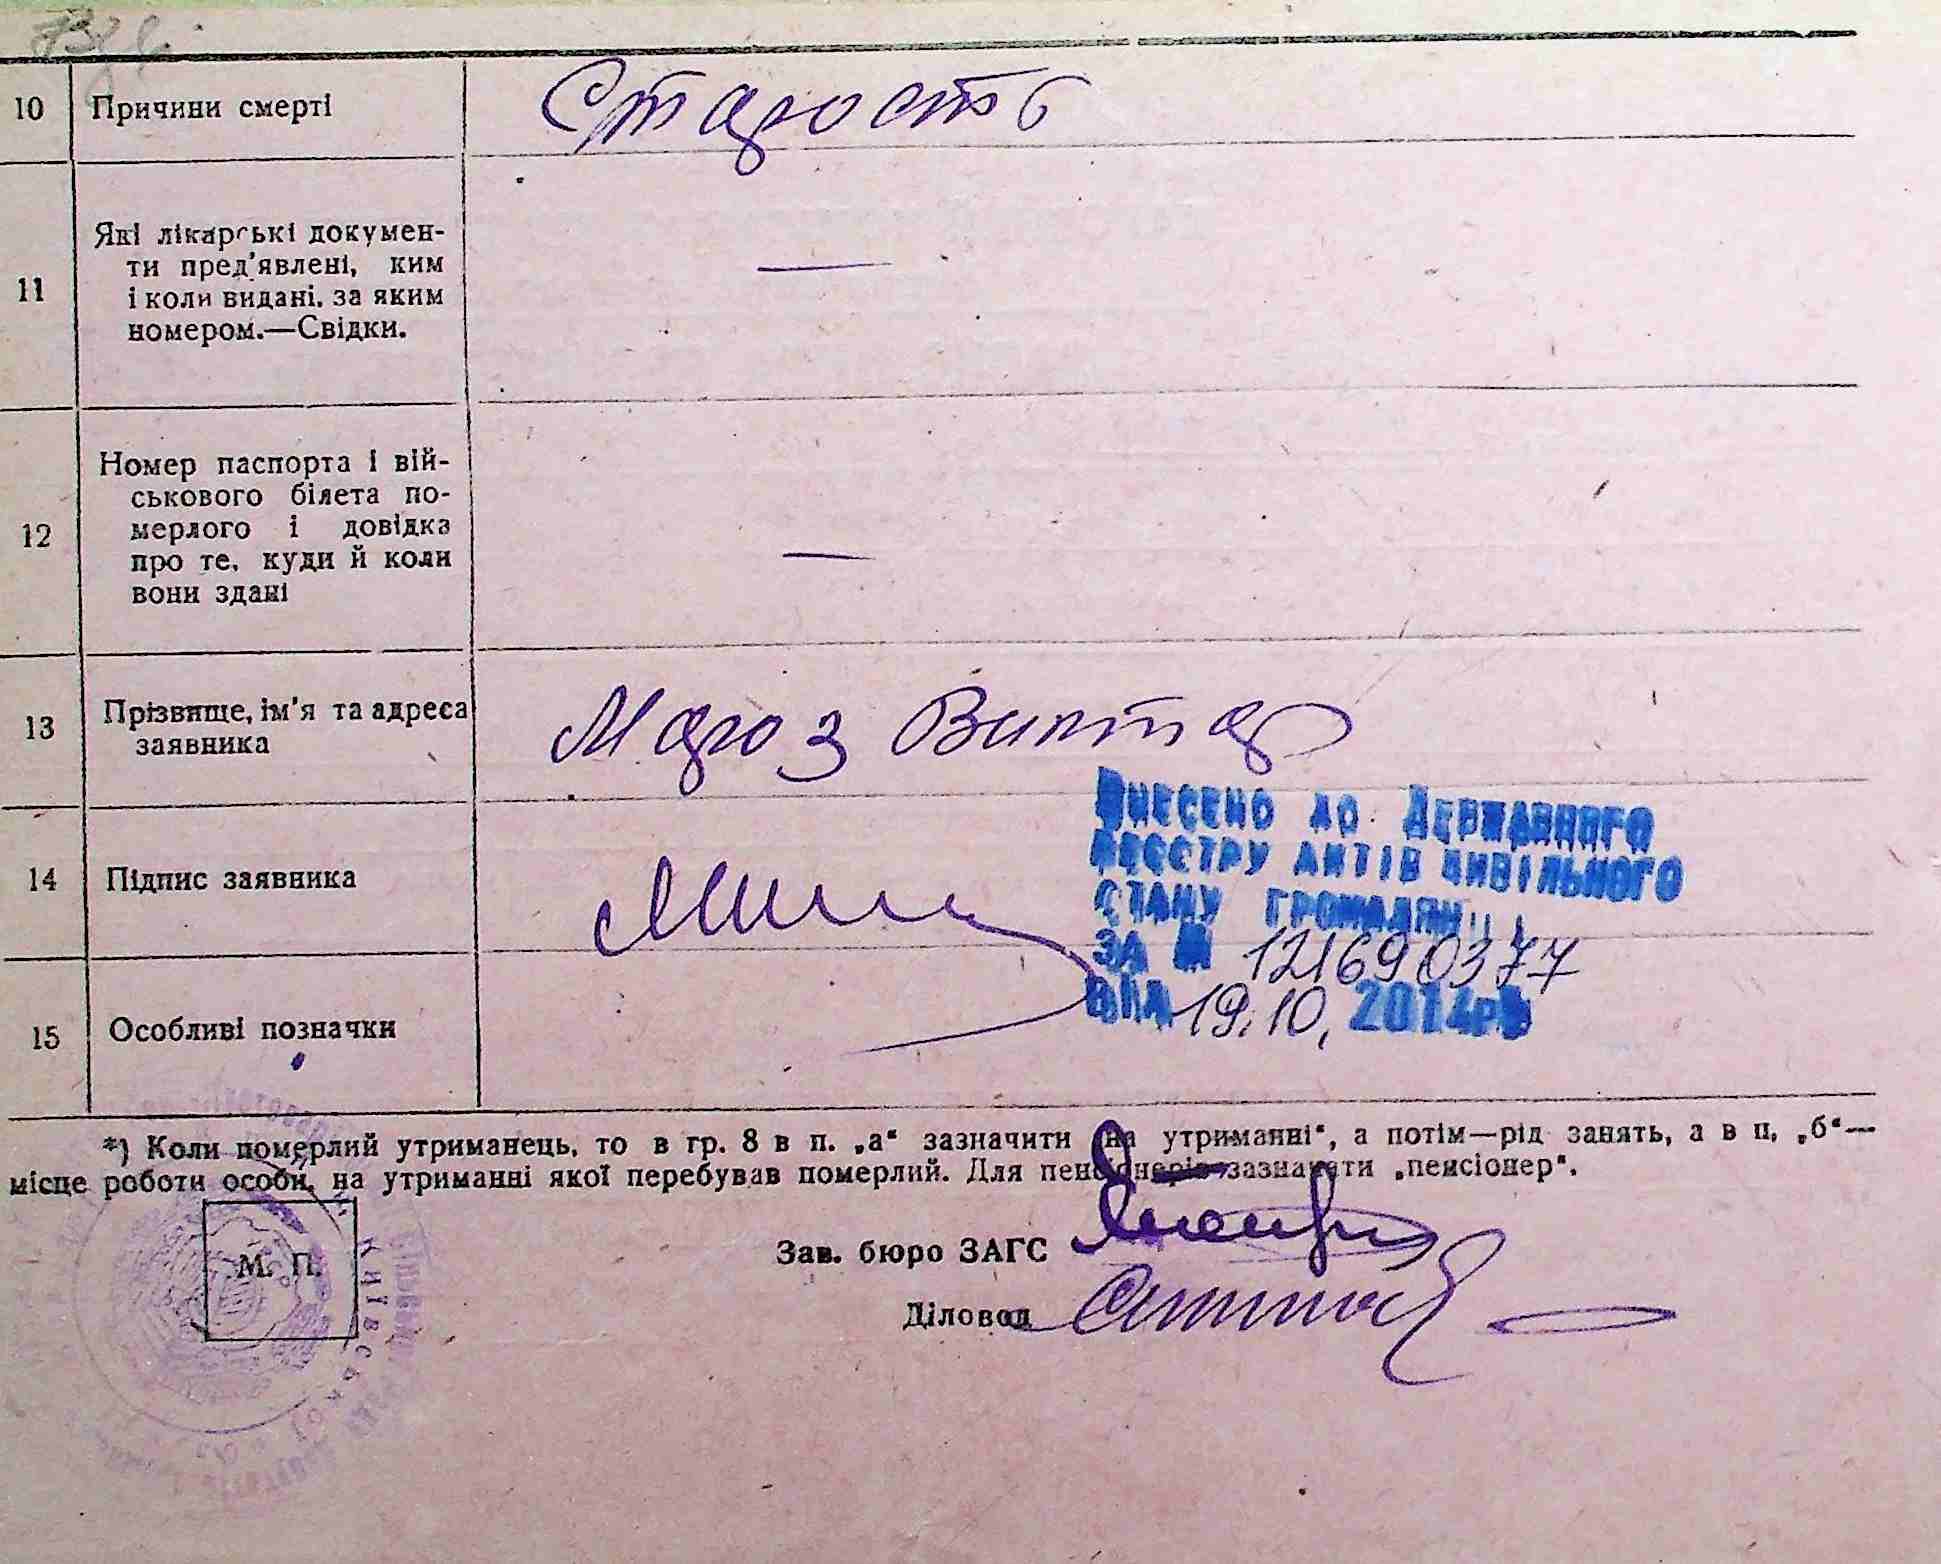 10 Причини смерті Старость
11 Які лікарські докумен-
ти пред'явлені, ким
і коли видані, за яким
номером.—Свідки. —
12 Номер паспорта і вій-
ськового білета по-
мерлого і довідка
про те, куди й коли
вони здані —
13 Прізвище, ім'я та адреса
заявника Мароз Виктар
14 Підпис заявника
Внесено до Державного
реєстру актів цивільного
стану громадян
за № 121690377
від 19.10. 2014р
15 Особливі позначки
*) Коли померлий утриманець, то в гр. 8 в п. „а“ зазначити „на утриманні“, а потім—рід занять, а в п. „б“—
місце роботи особи, на утриманні якої перебував померлий. Для пенсіонерів зазначати „пенсіонер“.
М. П.
Зав. бюро ЗАГС
Діловод